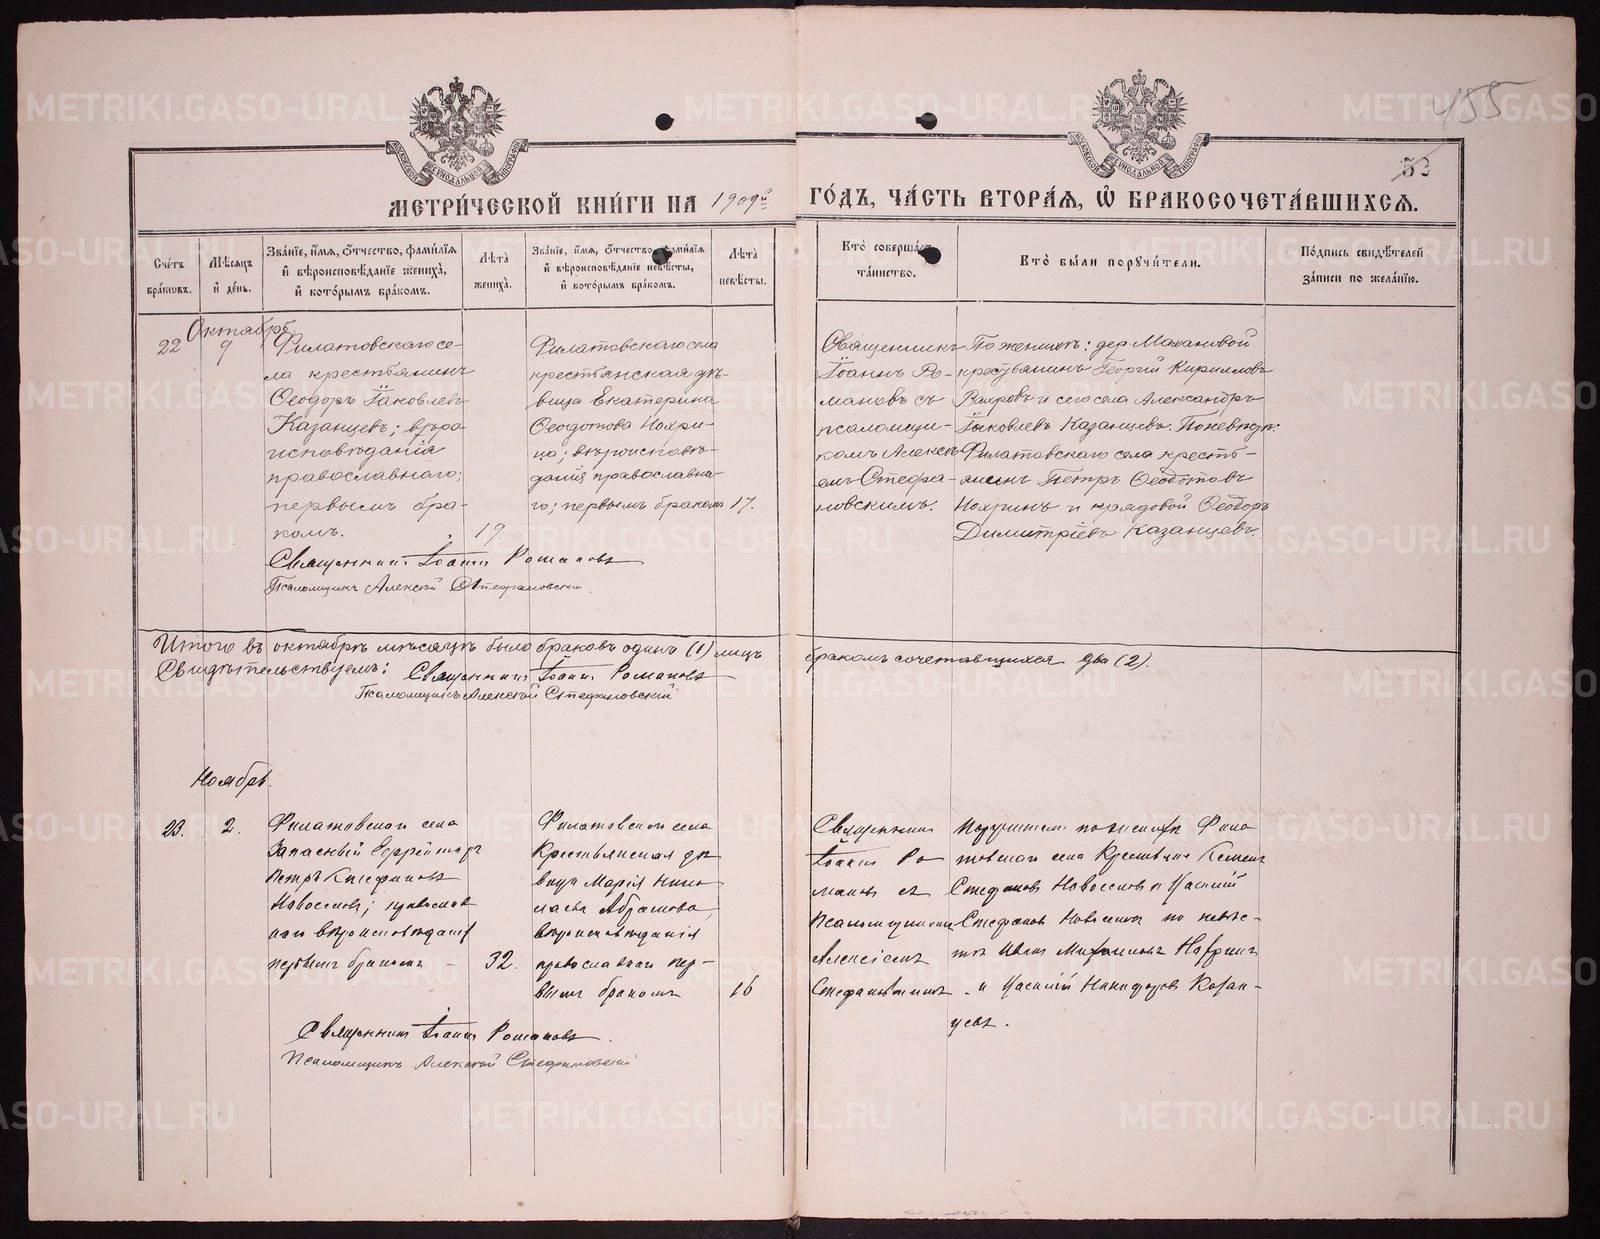 455
53
МЕТРИ́ЧЕСКОЙ КНИ́ГИ НА 1909й ГО́ДЪ, ЧА́СТЬ ВТОРА́Я, Ѡ БРАКОСОЧЕТА́ВШИХСЯ.
Сче́тъ бра́ковъ.
Мѣ́сяцъ и́ де́нь.
Зва́нїе, и́мя, ѻ́тчество, фами́лїя и́ вѣроисповѣ́данїе жениха̀, и́ кото́рымъ бра́комъ.
Лѣ́та жениха̀.
Зва́нїе, и́мя, ѻ́тчество, фами́лїя и́ вѣроисповѣ́данїе невѣ́сты, и́ кото́рымъ бра́комъ.
Лѣ́та невѣ́сты.
Кто̀ соверша́лъ та́инство.
Кто̀ бы́ли порꙋчи́тели.
По́дпись свидѣ́телей за́писи по жела́нїю.
Октябрь
22
9
Филатовскаго се-
ла крестьянинъ
Ѳеодоръ Іаковлевъ
Казанцевъ; вѣро-
исповѣданія
православнаго;
первымъ бра-
комъ.
19.
Филатовскаго села
крестьянская дѣ-
вица Екатерина
Ѳеодотова Нохри-
на; вѣроисповѣ-
данія православна-
го; первымъ бракомъ
17.
Священникъ
Іоаннъ Ро-
мановъ съ
псаломщи-
комъ Алексѣ-
емъ Стефа-
новскимъ.
По женихѣ: дер. Махановой
крестьянинъ Георгій Кирилловъ
Вахровъ и сего села Александръ
Іаковлевъ Казанцевъ. По невѣстѣ:
Филатовскаго села кресть-
янинъ Петръ Ѳеодотовъ
Нохринъ и рядовой Ѳеодоръ
Димитріевъ Казанцевъ.
Священникъ Іоаннъ Романовъ
Псаломщикъ Алексѣй Стефановскій.
Итого въ октябрѣ мѣсяцѣ было браковъ одинъ (1) лицъ бракомъ сочетавшихся два (2).
Свидѣтельствуемъ: Священникъ Іоаннъ Романовъ
Псаломщикъ Алексѣй Стефановскій
Ноябрь.
23.
2.
Филатовскаго села
Запасный Ефрейторъ
Петръ Стефановъ
Новоселовъ; православ
наго вѣроисповѣданія
первымъ бракомъ –
32.
Филатовскаго села
Крестьянская дѣ
вица Марія Нико
лаева Абрамова,
вѣроисповѣданія
православнаго пер-
вымъ бракомъ
16
Священникъ
Іоаннъ Ро
мановъ съ
Псаломщикомъ
Алексіемъ
Стефановскимъ
Поручители по женихѣ Фила
товскаго села Крестьяне
Стефановъ Новоселовъ и
Стефановъ Новоселовъ по невѣс-
тѣ Иванъ Михайловъ
и Никифоровъ Казан-
цевъ.
Священникъ Іоаннъ Романовъ.
Псаломщикъ Алексѣй Стефановскій
METRIKI.GASO-URAL.RU